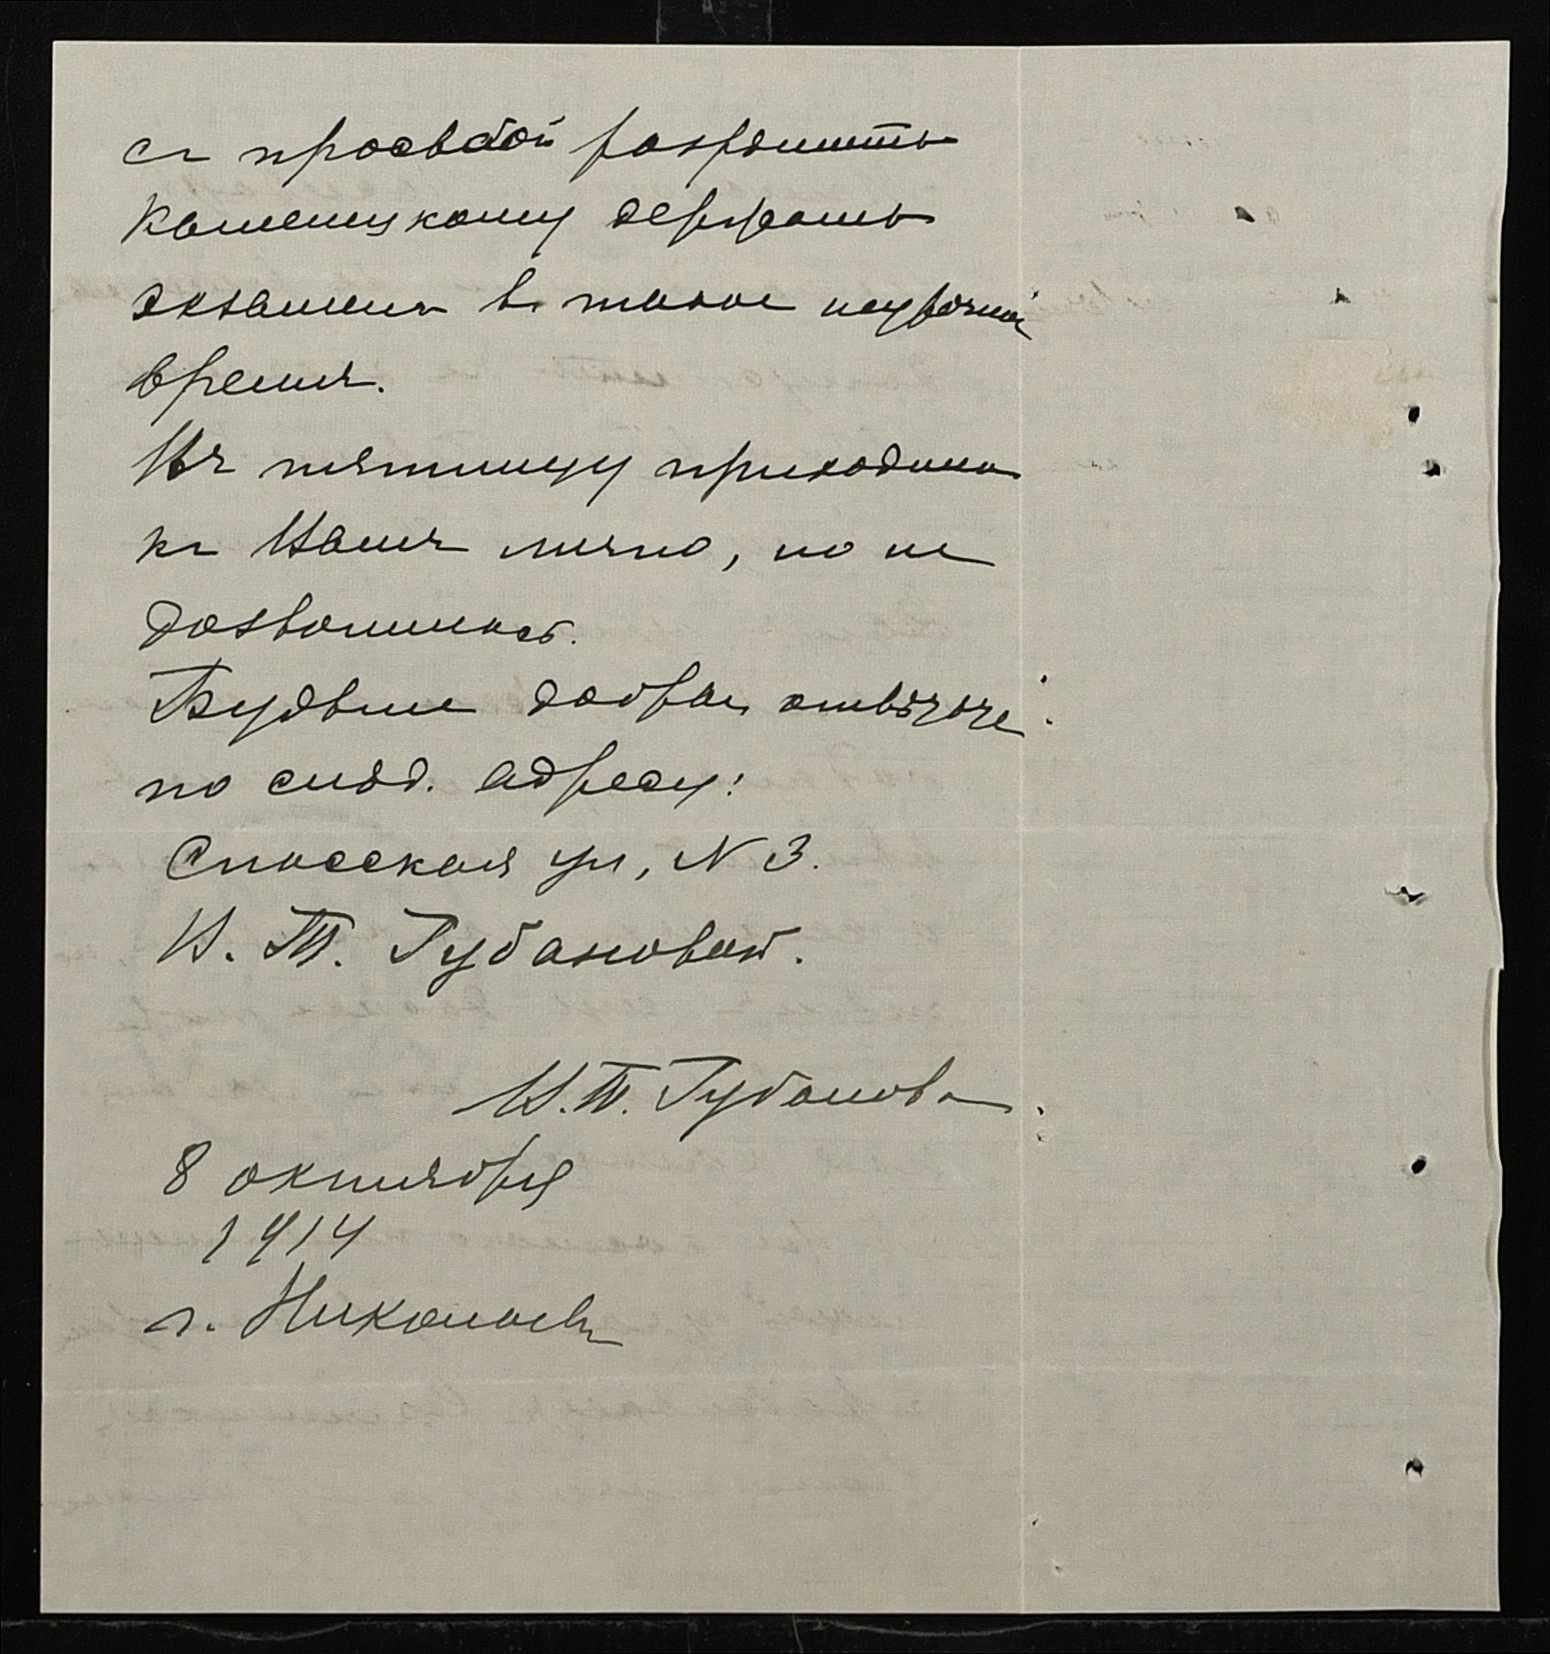 съ просьбой разрѣшить
Каменецкому держать
экзамены въ такое неурочное
время.
Въ пятницу приходила
къ Вамъ лично, но не
дозвонилась.
Будьте добры, отвѣчайте
по слѣд. адресу:
Спасская ул., N 3.
В. Т. Губановой.
В. Т. Губанова.
8 октября
1914
г. Николаевъ